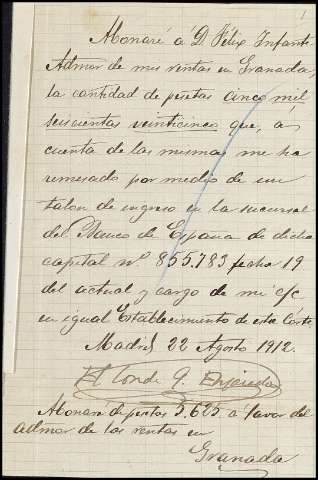 1
Abonaré á D. Félix Infante
Admor de mis rentas en Granada,
la cantidad de pesetas cinco mil
seiscientas veinticinco que, á
cuenta de las mismas me ha
remesado por medio de un
talon de ingreso en la sucursal
del Banco de España de dicha
capital nº 855.783 fecha 19
del actual y cargo de mi c/c
en igual Establecimiento de esta Córte.
Madrid 22 Agosto 1912.
El Conde G.
Abonaré de pesetas 5.625 á favor del
admor de las rentas en
Granada